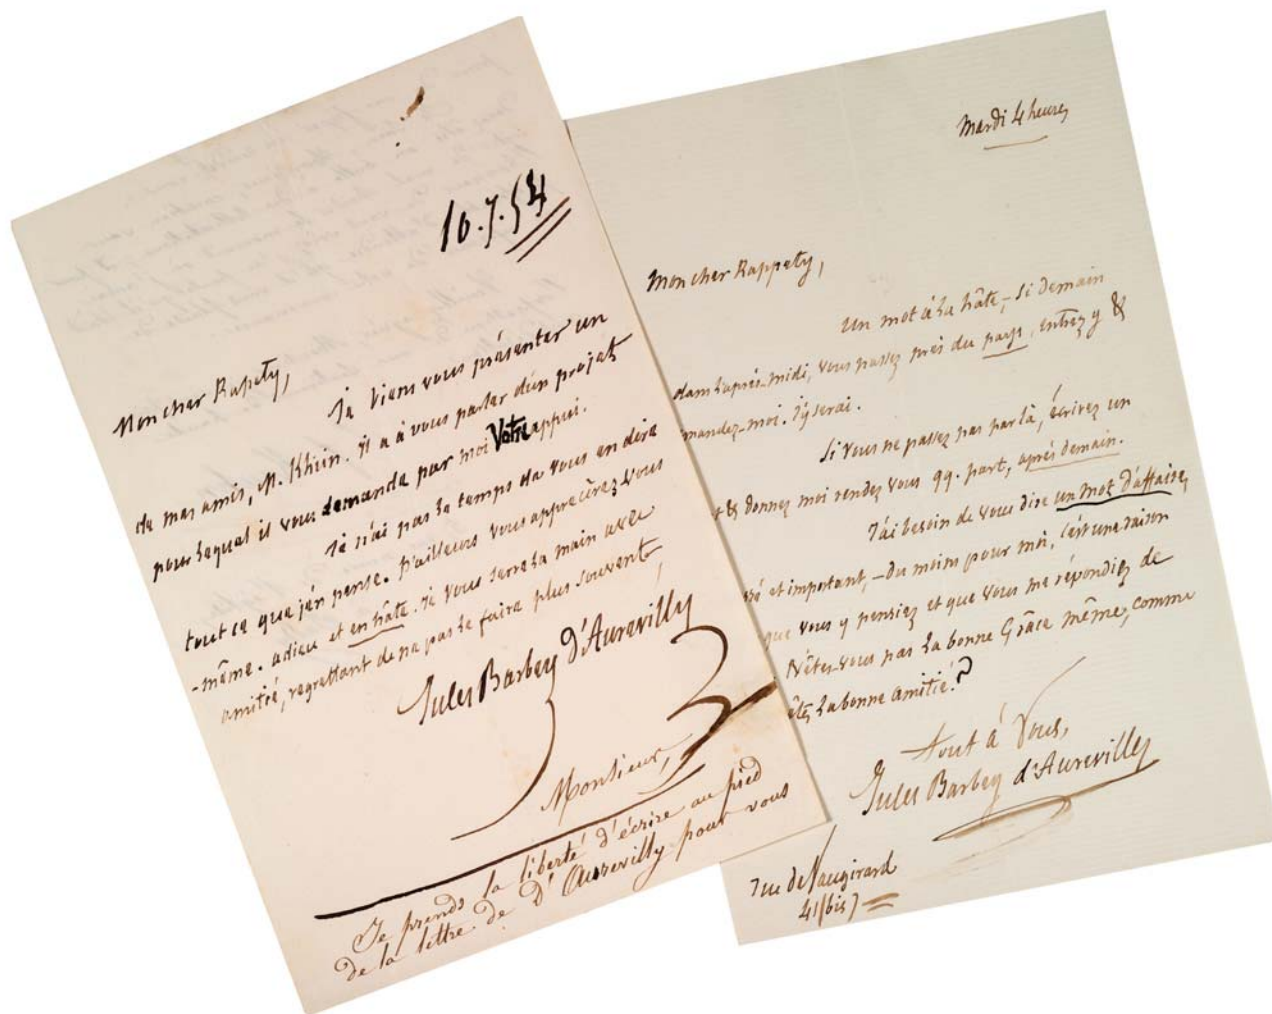 10.7.54
Mon cher Rapety,
Je viens vous présenter un
de mes amis, M. Khün. Il a à vous parler d'un projet
pour lequel il vous demande par moi Votre appui.
Je n'ai pas le temps de vous en dire
tout ce que j'en pense. D'ailleurs vous apprécierez vous
-même. adieu et en hâte. Je vous serre la main avec
amitié, regrettant de ne pas le faire plus souvent
Jules Barbey d'Aurevilly
Monsieur,
Je prends la liberté d'écrire au pied
de la lettre de D'Aurevilly pour vous
Mardi 4 heures
Mon cher Rappety,
Un mot à la hâte, – Si demain
dans l'après-midi, vous passez près du pays, entrez y &
mandez-moi. J'y serai.
Si vous ne passez pas par là, écrivez un
& donnez moi rendez vous qq. part, après demain.
J'ai besoin de vous dire un mot d'affaire,
et important, – du moins pour moi, c'est une raison
que vous y pensiez et que vous me répondiez de
N'êtes-vous pas la bonne Grâce même, comme
êtes la bonne Amitié?
tout à Vous,
Jules Barbey d'Aurevilly
rue de Vaugirard
41 (bis)